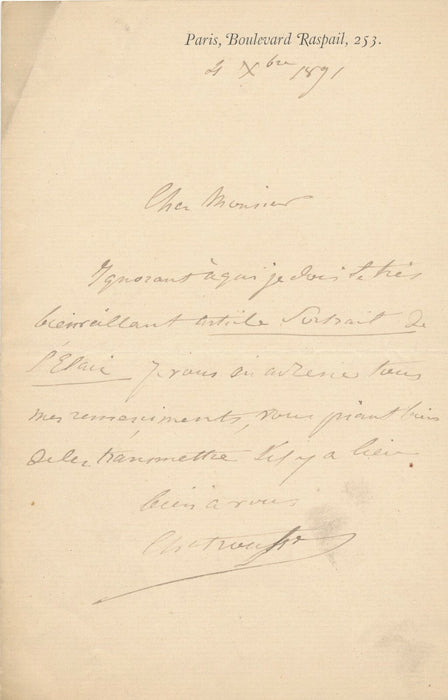 Paris, Boulevard Raspail, 253.
4 Xbre 1891
Cher Monsieur
Ignorant à qui je dois le très
bienveillant article Portrait de
l'Éclair je vous en adresse tous
mes remerciments, vous priant bien
de les transmettre s'il y a lieu
bien à vous
Chatrousse